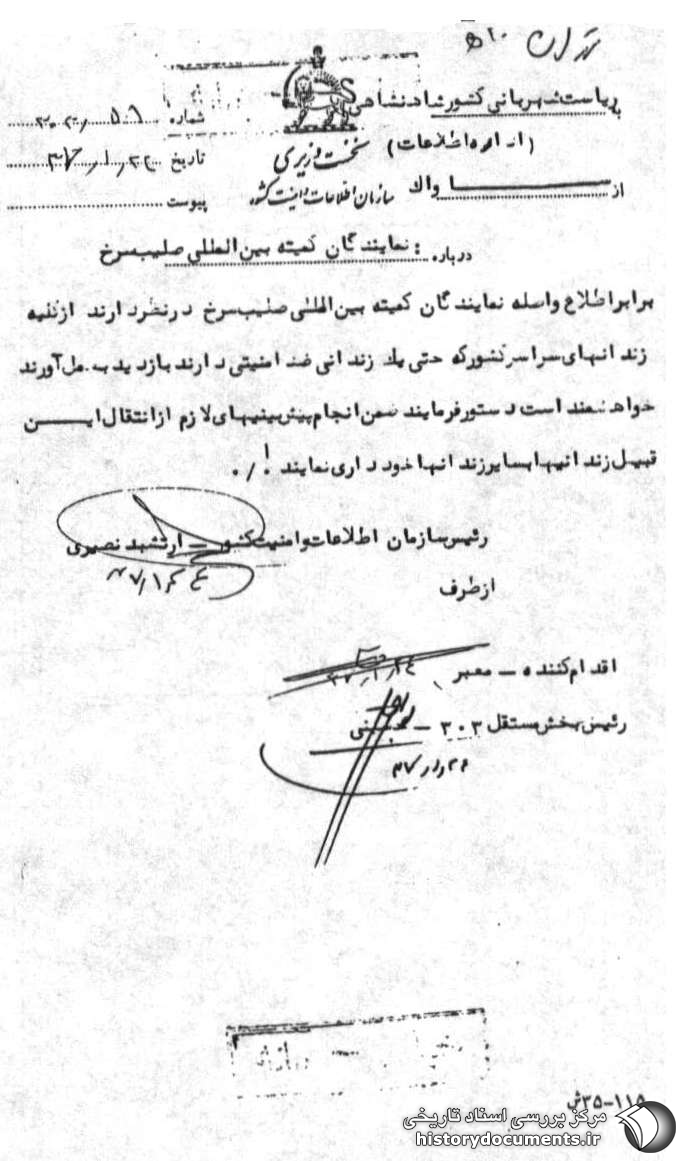 تهران
به ریاست شهربانی کشور شاهنشاهی
(اداره اطلاعات)
از ساواک
نخست وزیری
سازمان اطلاعات و امنیت کشور
شماره
تاریخ
پیوست
درباره : نمایندگان کمیته بین المللی صلیب سرخ
برابر اطلاع واصله نمایندگان کمیته بین المللی صلیب سرخ در نظر دارند از کلیه
زندانهای سراسر کشور که حتی یک زندانی ضد امنیتی دارند بازدید بعمل آورند
خواهشمند است دستور فرمایند ضمن انجام پیش بینیهای لازم از انتقال این
قبیل زندانیها بسایر زندانها خودداری نمایند ./.
رئیس سازمان اطلاعات و امنیت کشور ــ ارتشبد نصیری
از طرف
اقدام کننده ــ معبر
رئیس بخش مستقل ۳۰۳ ــ
۳۵-۱۱۵ش
مرکز بررسی اسناد تاریخی
historydocuments.ir